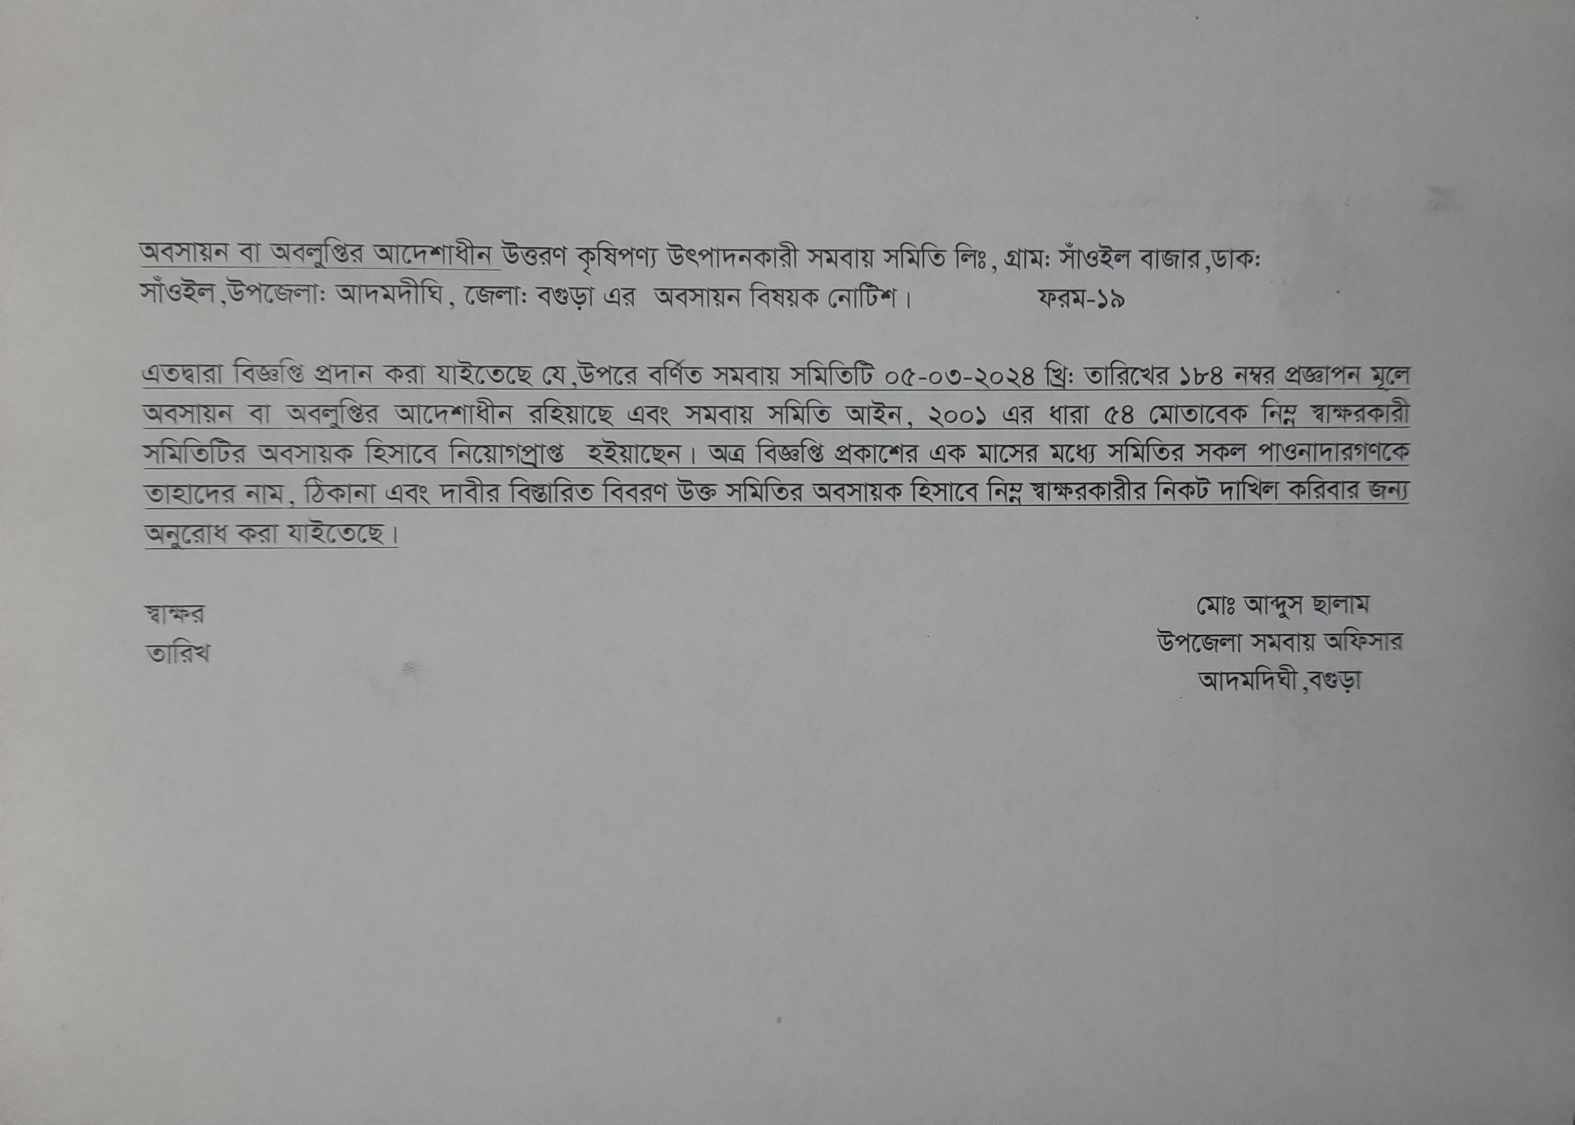 অবসায়ন বা অবলুপ্তির আদেশাধীন উত্তরণ কৃষিপণ্য উৎপাদনকারী সমবায় সমিতি লিঃ, গ্রাম: সাঁওইল বাজার,ডাক:
সাঁওইল,উপজেলা: আদমদীঘি, জেলা: বগুড়া এর অবসায়ন বিষয়ক নোটিশ। ফরম-১৯
এতদ্বারা বিজ্ঞপ্তি প্রদান করা যাইতেছে যে,উপরে বর্ণিত সমবায় সমিতিটি ০৫-০৩-২০২৪ খ্রি: তারিখের ১৮৪ নম্বর প্রজ্ঞাপন মূলে
অবসায়ন বা অবলুপ্তির আদেশাধীন রহিয়াছে এবং সমবায় সমিতি আইন, ২০০১ এর ধারা ৫৪ মোতাবেক নিম্ন স্বাক্ষরকারী
সমিতিটির অবসায়ক হিসাবে নিয়োগপ্রাপ্ত হইয়াছেন। অত্র বিজ্ঞপ্তি প্রকাশের এক মাসের মধ্যে সমিতির সকল পাওনাদারগণকে
তাহাদের নাম, ঠিকানা এবং দাবীর বিস্তারিত বিবরণ উক্ত সমিতির অবসায়ক হিসাবে নিম্ন স্বাক্ষরকারীর নিকট দাখিল করিবার জন্য
অনুরোধ করা যাইতেছে।
স্বাক্ষর
তারিখ
মোঃ আব্দুস ছালাম
উপজেলা সমবায় অফিসার
আদমদিঘী,বগুড়া